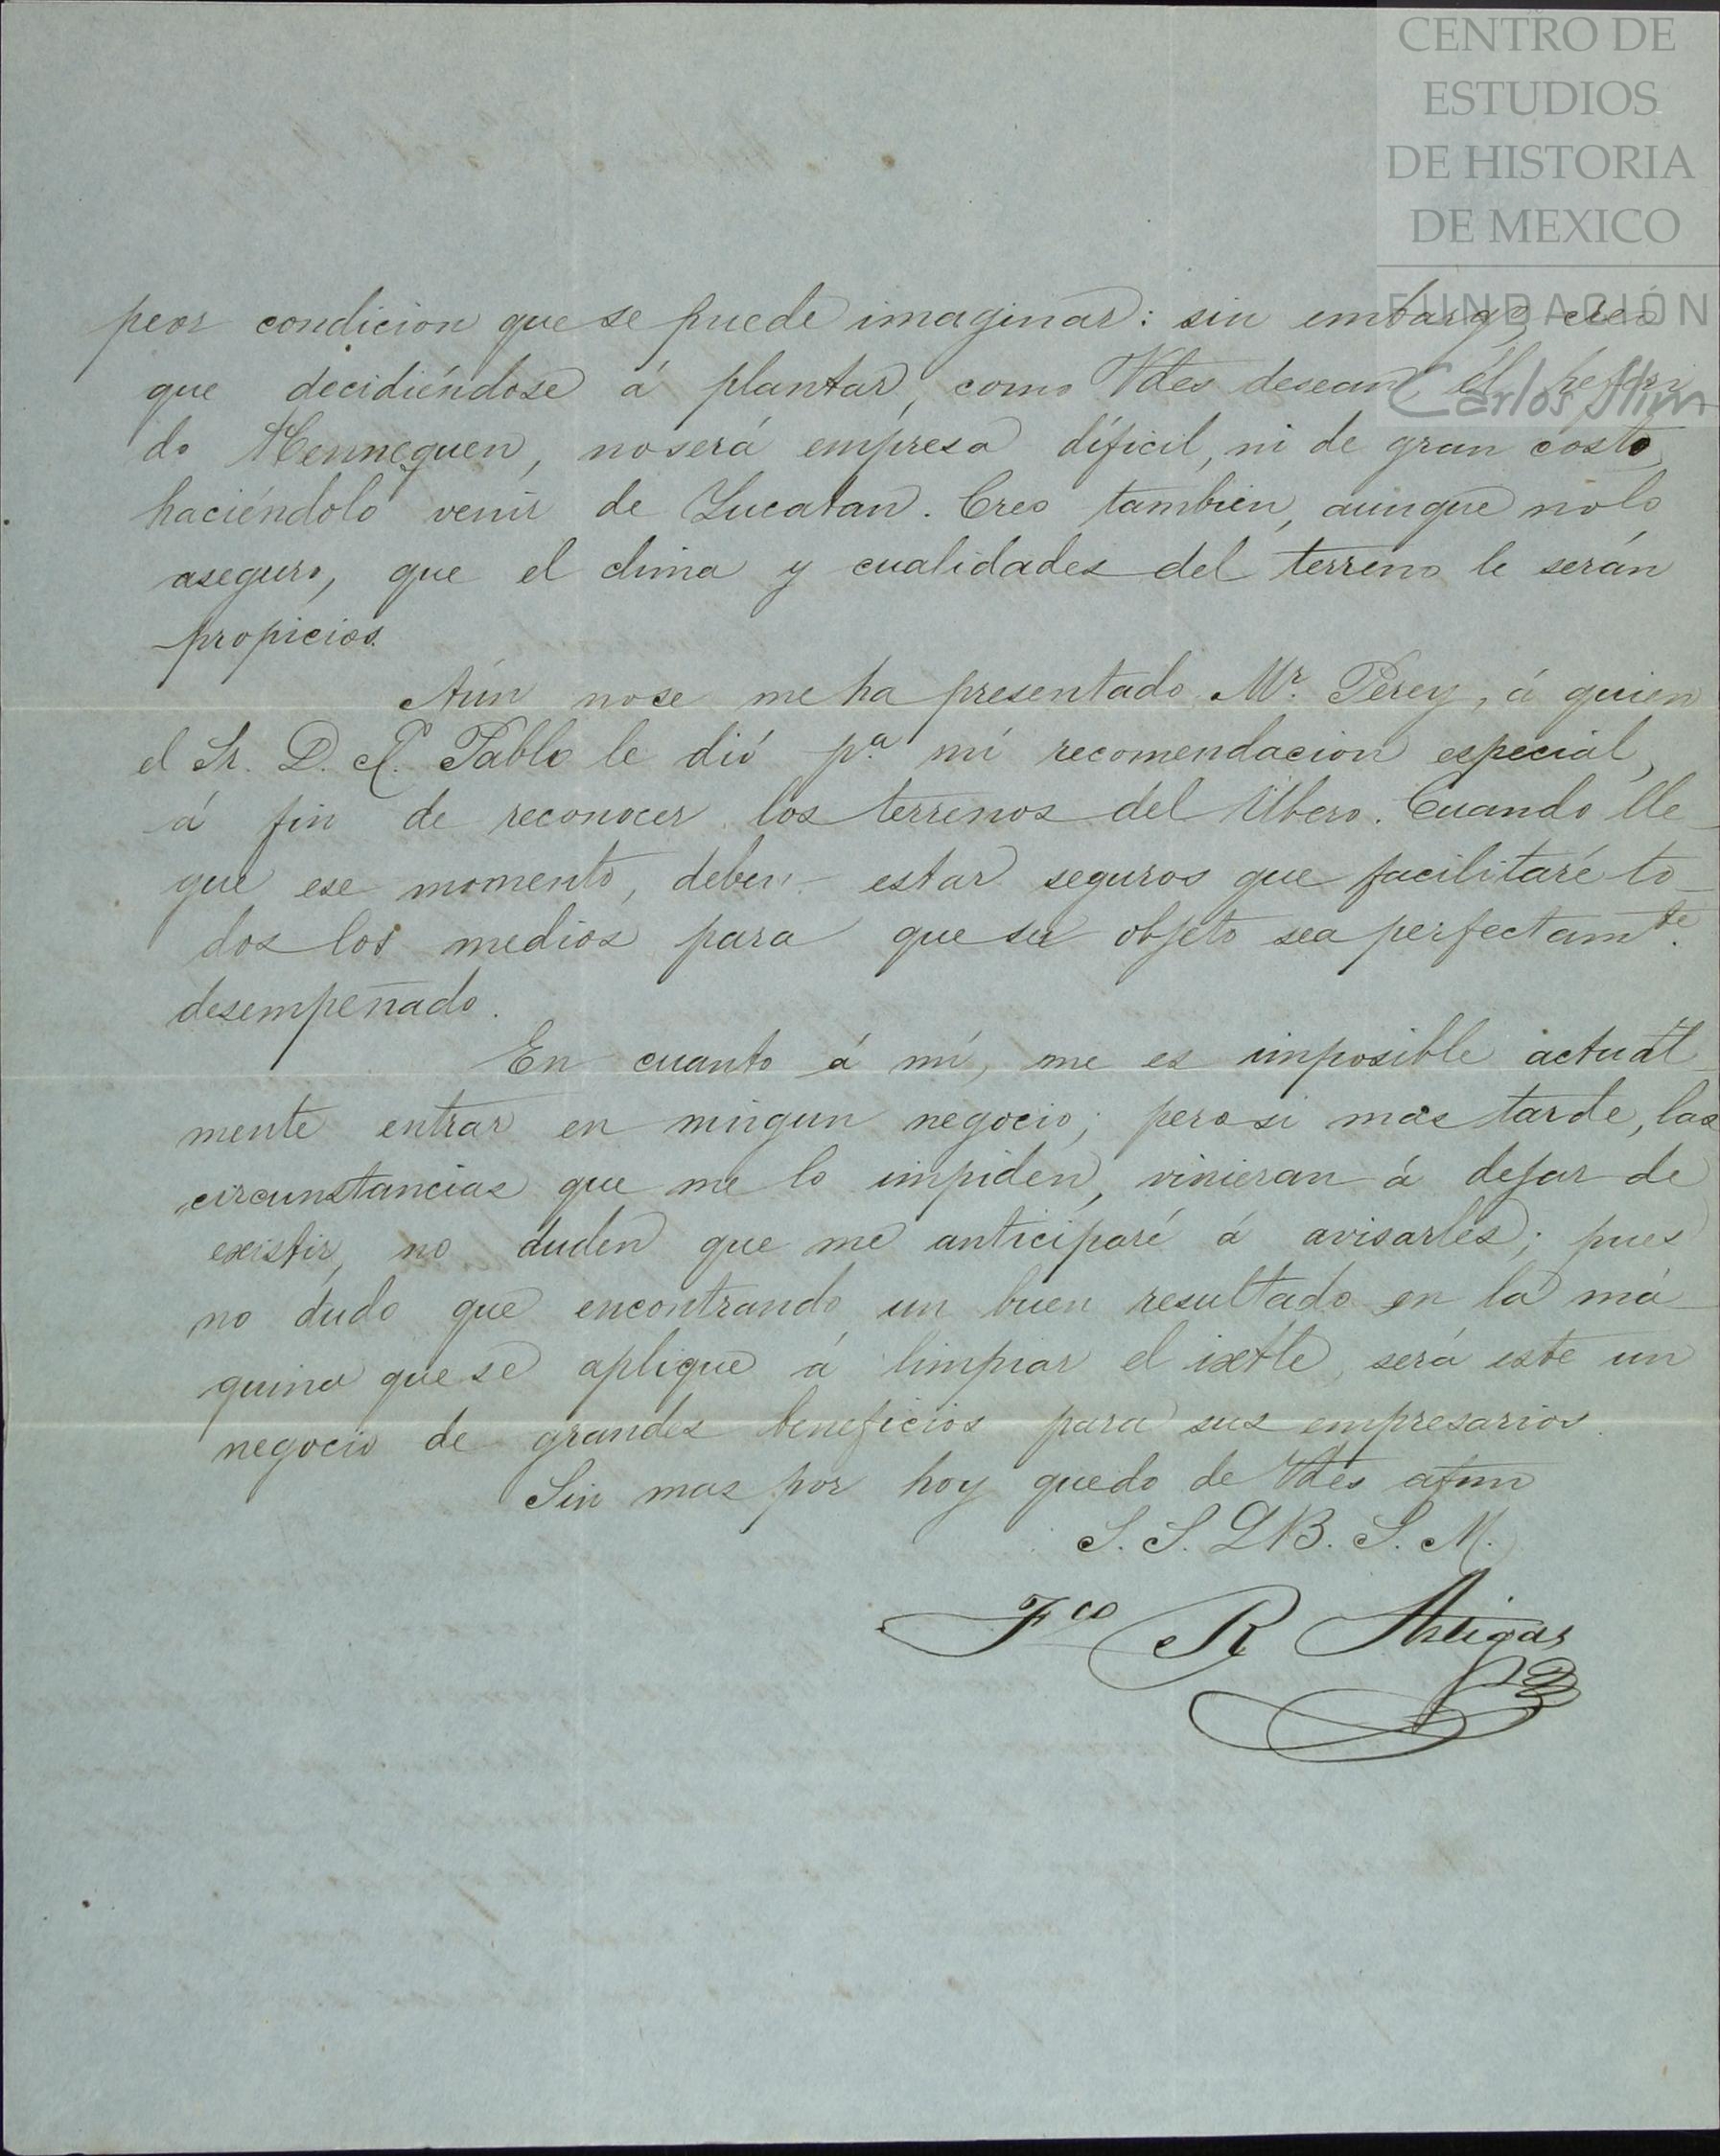 CENTRO DE
ESTUDIOS
DE HISTORIA
DE MEXICO
FUNDACIÓN
Carlos Slim
peor condicion que se puede imaginar: sin embargo, creo
que decidiéndose á plantar, como Vdes desean el
do Hennequen, no será empresa díficil, ni de gran costo
haciéndolo venir de Yucatan. Creo tambien, aunque no lo
aseguro, que el clima y cualidades del terreno le serán
propicios.
Aún no se me ha presentado Mr. Percy, á quien
el Sr. D. A. Pablo le dió pa. mí recomendacion especial,
á fin de reconocer los terrenos del Ubero. Cuando lle-
gue ese momento, deben estar seguros que facilitaré to-
dos los medios para que su objeto sea perfectamte.
desempeñado.
En cuanto á mí, me es imposible actual-
mente entrar en ningun negocio; pero si mas tarde, las
circunstancias que me lo impiden, vinieran á dejar de
existir, no duden que me anticiparé á avisarles; pues
no dudo que encontrando un buen resultado en la má-
quina que se aplique á limpiar el ixtle, será este un
negocio de grandes beneficios para sus empresarios.
Sin mas por hoy quedo de Vdes afmo
S. S. Q B. S. M.
Fco R Artigas